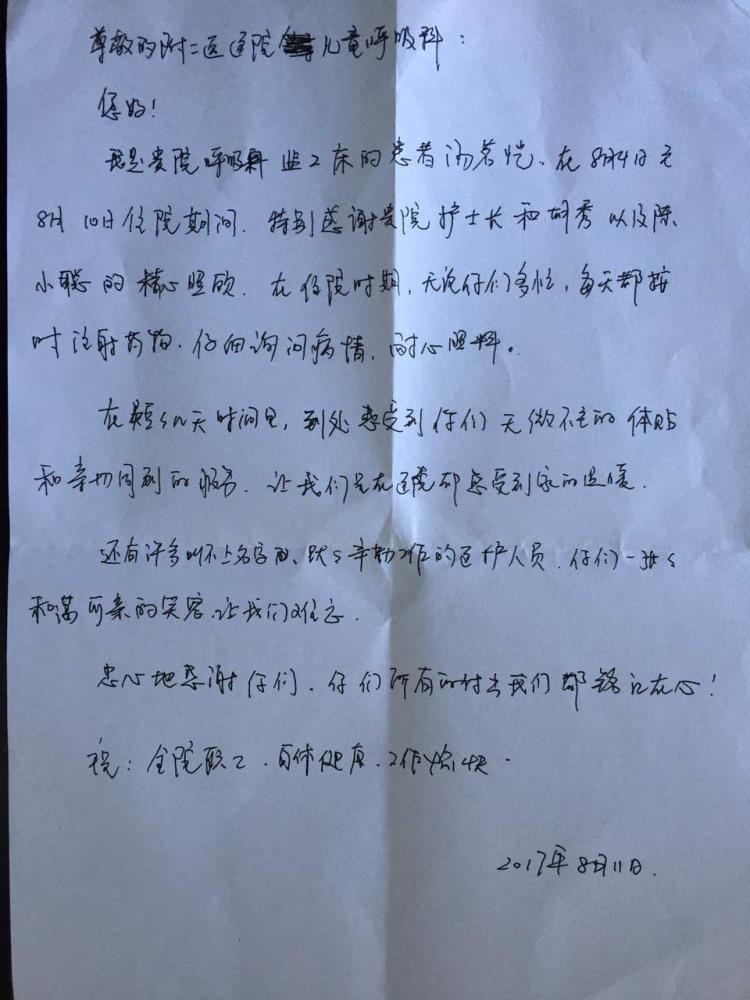 尊敬的附二医医院儿童呼吸科：
您好！
我是贵院呼吸科监2床的患者汤茗恺、在8月4日至
8月10日住院期间、特别感谢贵院护士长和胡秀以及陈
小聪的精心照顾、在住院时期，无论你们多忙，每天都按
时注射药物、仔细询问病情、耐心照料。
在短短几天时间里，到处感受到你们无微不至的体贴
和亲切周到的服务、让我们虽在医院却感受到家的温暖、
还有许多叫不上名字的、默默辛勤工作的医护人员、你们一张张
和蔼可亲的笑容、让我们难忘、
忠心地感谢你们、你们所有的付出我们都铭记在心！
祝：全院职工、身体健康、工作愉快、
2017年8月11日、